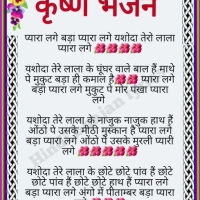 कृष्ण भजन
प्यारा लगे बड़ा प्यारा लगे यशोदा तेरो लाला
प्यारा लगे 🌺🌺🌺🌺
यशोदा तेरे लाला के घूंघर वाले बाल हैं माथे
पे मुकुट बड़ा ही कमाल है🌺🌺 प्यारा लगे
बड़ा प्यारा लगे मुकुट पे मोर पंखा प्यारा
लगे
यशोदा तेरे लाला के नाजुक नाजुक हाथ हैं
ओंठो पे उसके मीठी मुस्कान है प्यारा लगे
बड़ा प्यारा लगे ओंठों पे उसके मुरली प्यारी
लगे 🌺🌺🌺
यशोदा तेरे लाला के छोटे छोटे पांव हैं छोटे
छोटे पांव हैं छोटे छोटे हाथ हैं प्यारा लगे
बड़ा प्यारा लगे अंगो में पीताम्बर बड़ा प्यारा